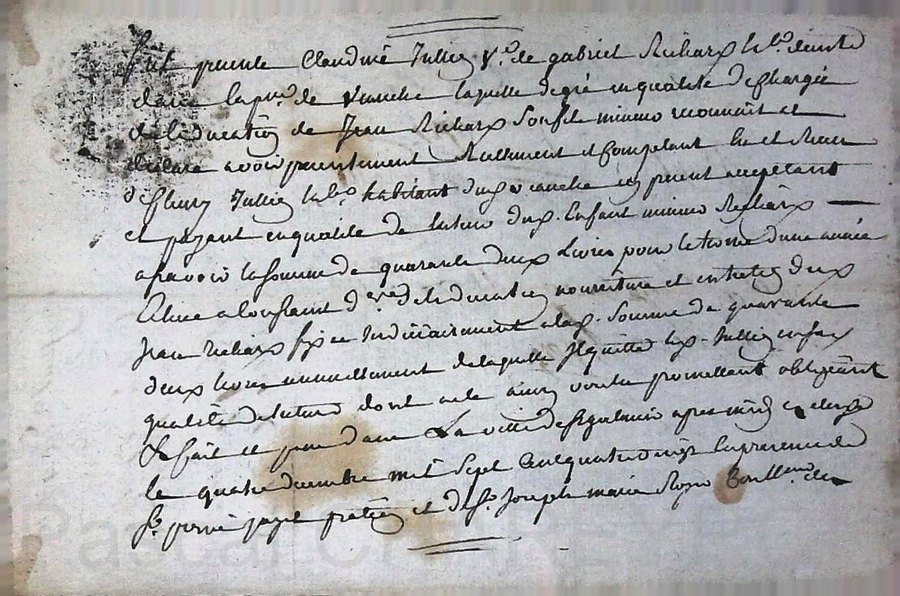 fut presente Claudine Jullien v.e de gabriel Richard hb. demte
dans la par.e de laquelle de gré en qualité de chargée
de l'education de Jean Richard son fils mineur reconnoit et
declare avoir presentement Reellement et Comptant Eu et Receu
de fleury Jullien hab.t habitant du g. ci present acceptant
et payant en qualité de tuteur dud. Enfant mineur Richard
a savoir la somme de quarante deux Livres pour le terme d'une année
d'education nourriture et entretien dud.
Jean Richard fixée Judiciairement a lad. Somme de quarante
deux livres annuellement de laquelle Jl quitte led. Jullien en sad.
qualité de tuteur dont acte ainsi voulu promettant obligeant
&c fait et passé dans La ville de après midi en etude
le quatre decembre mil Sept Cent quatre vingt En presence de
S.r pierre paget praticien et de S.r Joseph marie